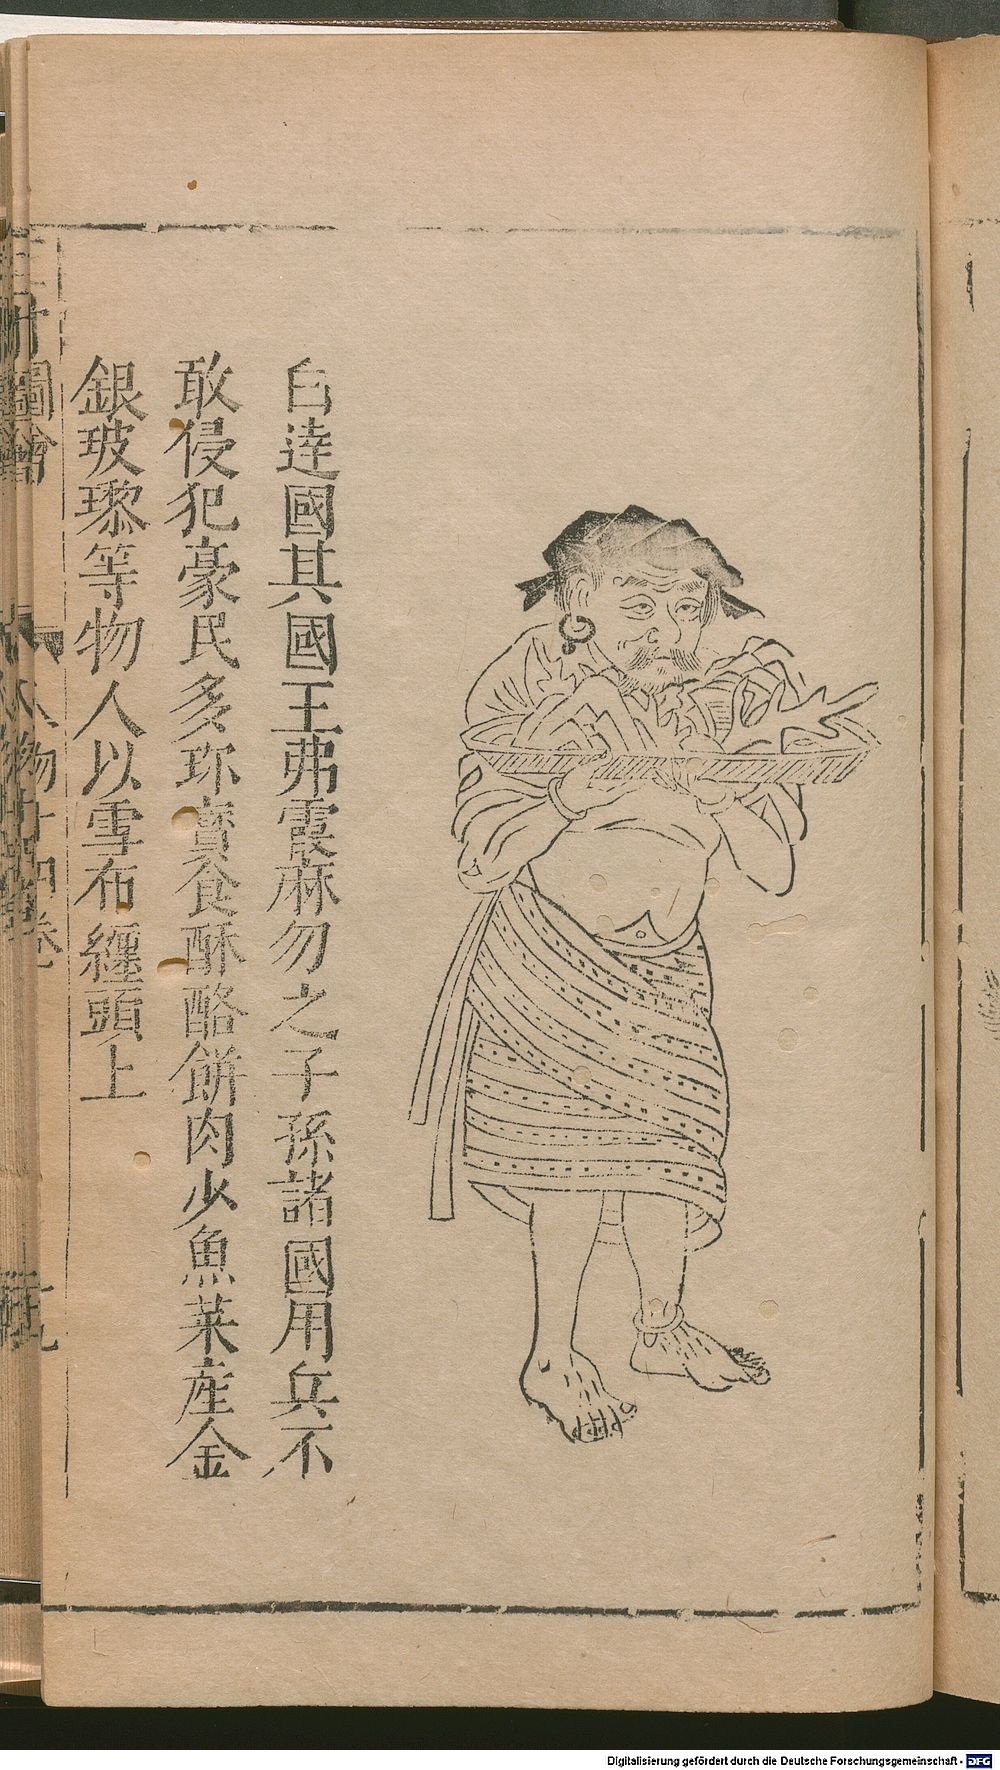 白達國其國王弗霞麻勿之子孫諸國用兵不
敢侵犯豪民多珎寳食酥酪餅肉少魚菜産金
銀玻瓈等物人以雪布纒頭上
圖會
人物十四卷
Digitalisierung gefördert durch die Deutsche Forschungsgemeinschaft - DFG